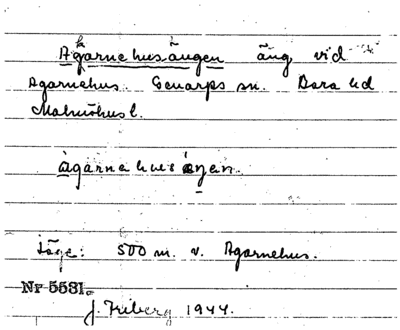 Agarnehusängen äng vid
Agarnehus. Genarps sn. Bara hd
Malmöhus l.
àgárnehusäŋen.
Läge: 500 m. v. Agarnehus.
Nr 5531.
J. Friberg 1944.